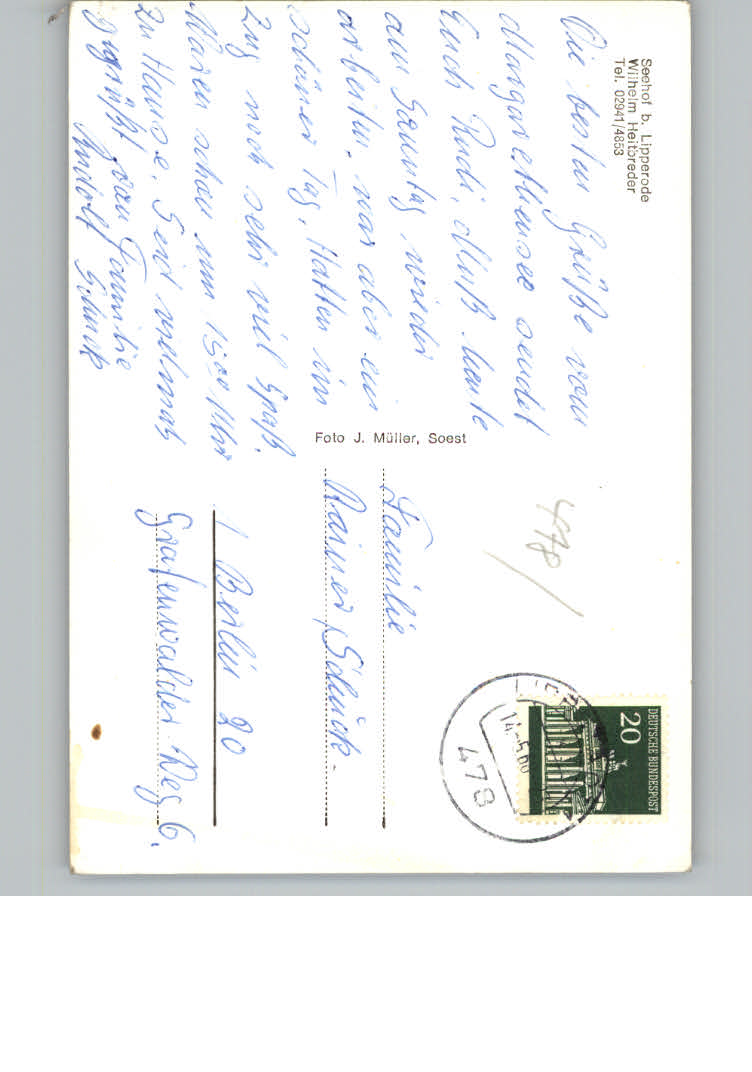 Seehof b. Lipperode
Wilhelm Heitbreder
Tel. 02941/4853
Die besten Grüße vom
Margarethensee sendet
Euch Rudi. Muß heute
am Sonntag, wieder
arbeiten. war aber ein
schöner Tag. Hatten im
Zug noch sehr viel Spaß.
Waren schon um 15⁰⁰ Uhr
zu Hause. Seid vielmals
gegrüßt von Familie
Rudolf Schuck
Foto J. Müller, Soest
478
DEUTSCHE BUNDESPOST
20
478
Familie
Rainer Schuck.
1 Berlin 20
Grafenwalder Weg 6.